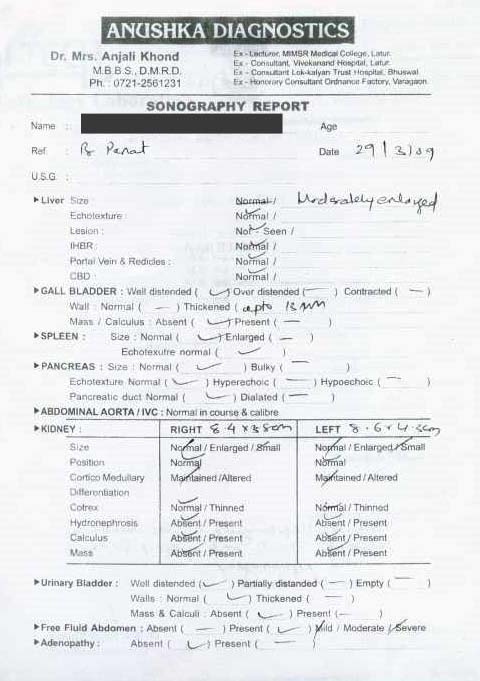 ANUSHKA DIAGNOSTICS
Dr. Mrs. Anjali Khond
M.B.B.S., D.M.R.D.
Ph. : 0721-2561231
Ex - Lecturer, MIMSR Medical College, Latur.
Ex - Consultant, Vivekanand Hospital, Latur.
Ex - Consultant Lok-kalyan Trust Hospital, Bhuswal
Ex - Honorary Consultant Ordnance Factory, Varagaon.
SONOGRAPHY REPORT
Name : Age
Ref. : Date 29/3/09
U.S.G. :
Liver Size : Normal / Moderately enlarged
Echotexture : Normal /
Lesion : Not - Seen /
IHBR : Normal /
Portal Vein & Redicles : Normal /
CBD : Normal /
GALL BLADDER : Well distended ( ✓ ) Over distended ( — ) Contracted ( — )
Wall : Normal ( — ) Thickened ( upto 13 mm
Mass / Calculus : Absent ( ✓ ) Present ( — )
SPLEEN : Size : Normal ( ✓ ) Enlarged ( — )
Echotexutre normal ( ✓ )
PANCREAS : Size : Normal ( ✓ ) Bulky ( — )
Echotexture Normal ( ✓ ) Hyperechoic ( — ) Hypoechoic ( — )
Pancreatic duct Normal ( ✓ ) Dialated ( — )
ABDOMINAL AORTA / IVC : Normal in course & calibre.
KIDNEY : RIGHT 8.4 x 3.8cm LEFT 8.6 x 4.3cm
Size Normal / Enlarged / Small Normal / Enlarged / Small
Position Normal Normal
Cortico Medullary Maintained / Altered Maintained / Altered
Differentiation
Cotrex Normal / Thinned Normal / Thinned
Hydronephrosis Absent / Present Absent / Present
Calculus Absent / Present Absent / Present
Mass Absent / Present Absent / Present
Urinary Bladder : Well distended ( ✓ ) Partially distanded ( — ) Empty ( — )
Walls : Normal ( ✓ ) Thickened ( — )
Mass & Calculi : Absent ( ✓ ) Present ( — )
Free Fluid Abdomen : Absent ( — ) Present ( ✓ ) Mild / Moderate / Severe
Adenopathy : Absent ( ✓ ) Present ( — )